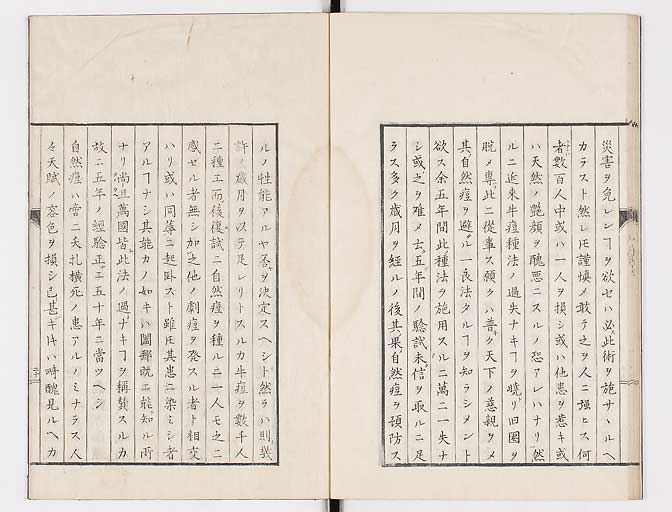 災害ヲ免レンヿヲ欲セハ必此術ヲ施サヽルヘ
カラスト然レ𪜈謹慎メ敢テ之ヲ人ニ強ヒス何
者數百人中或ハ一人ヲ損シ或ハ他患ヲ惹キ或
ハ天然ノ艶顔ヲ醜悪ニスルノ恐アレハナリ然
ルニ近來牛痘種法ノ過失ナキヿヲ曉リ旧圏ヲ
脱メ專此ニ從事ス願クハ普ク天下ノ慈親ヲメ
其自然痘ヲ避ル一良法タルヿヲ知ラシメント
欲ス余五年間此種法ヲ施用スルニ萬ニ一失ナ
シ或之ヲ難メ云五年間ノ驗試未信ヲ取ルニ足
ラス多ク歳月ヲ經ルノ後其果自然痘ヲ預防ス
ルノ性能アルヤ否ヲ決定スヘシト然ラハ則幾
許ノ歳月ヲ以テ足レリトスルカ牛痘ヲ數千人
ニ種エ而後復試ニ自然痘ヲ種ルニ一人モ之ニ
感セル者無シ加之他ノ劇痘ヲ発スル者ト相交
ハリ或ハ同蓐ニ起臥スト雖𪜈其患ニ染ミシ者
アルヿナシ其能カノ如キハ闔郷既ニ能知ル所
ナリ尚且萬國皆此法ノ過ナキヿヲ稱賛スルカ
故ニ五年ノ經驗正ニ五十年ニ當ツヘシ
自然痘ハ啻ニ夭札横死ノ患アルノミナラス人
々天賦ノ容色ヲ損シ已甚キ𪜈ハ時醜見ルヘカ